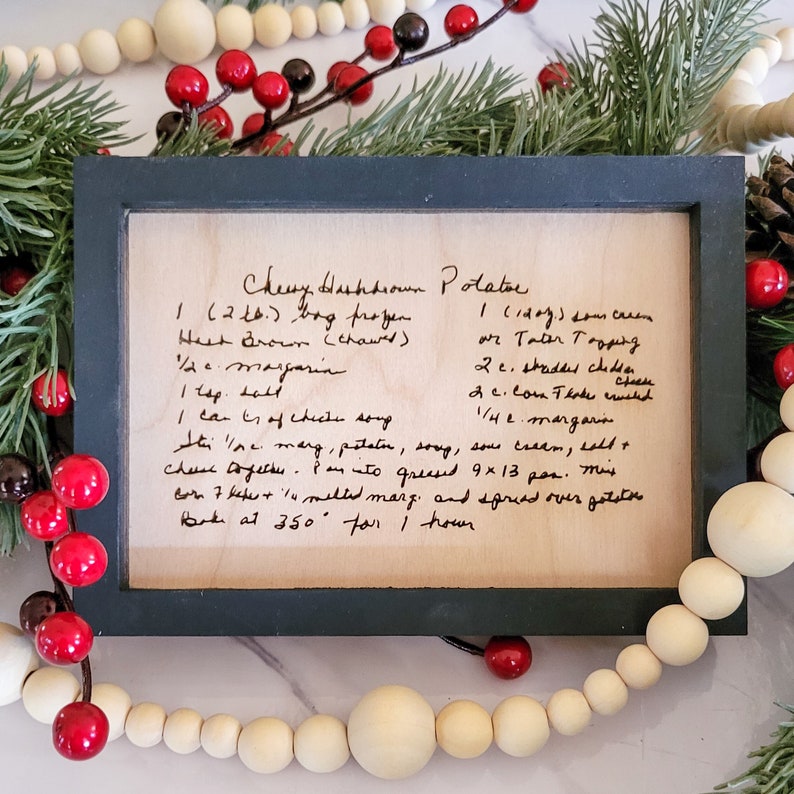 Cheesy Hashbrown Potatoe
1 (2 lb.) bag frozen
Hash Brown (thawed)
1/2 c. margarin
1 tsp. salt
1 can cr of chicken soup
1 (12 oz) sour cream
or Tater Topping
2 c. shredded cheddar
cheese
2 c. Corn Flakes crushed
1/4 c. margarin
Stir 1/2 c. marg, potatoe, soup, sour cream, salt +
cheese together. Pour into greased 9x13 pan. Mix
corn Flakes + 1/4 melted marg. and spread over potatoe
Bake at 350° for 1 hour